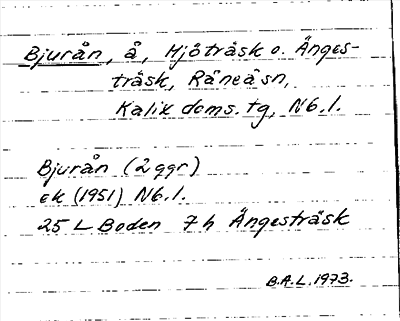 Bjurån, å, Mjöträsk o. Änges-
träsk, Råneå sn,
Kalix doms. tg, Nb. l.
Bjurån (2 ggr)
ek (1951) Nb. l.
25 L Boden 7 h Ängesträsk
B.A.L. 1973.